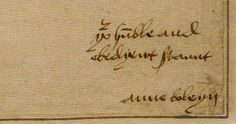 yor humble and
obedyent servant
anne boleyn